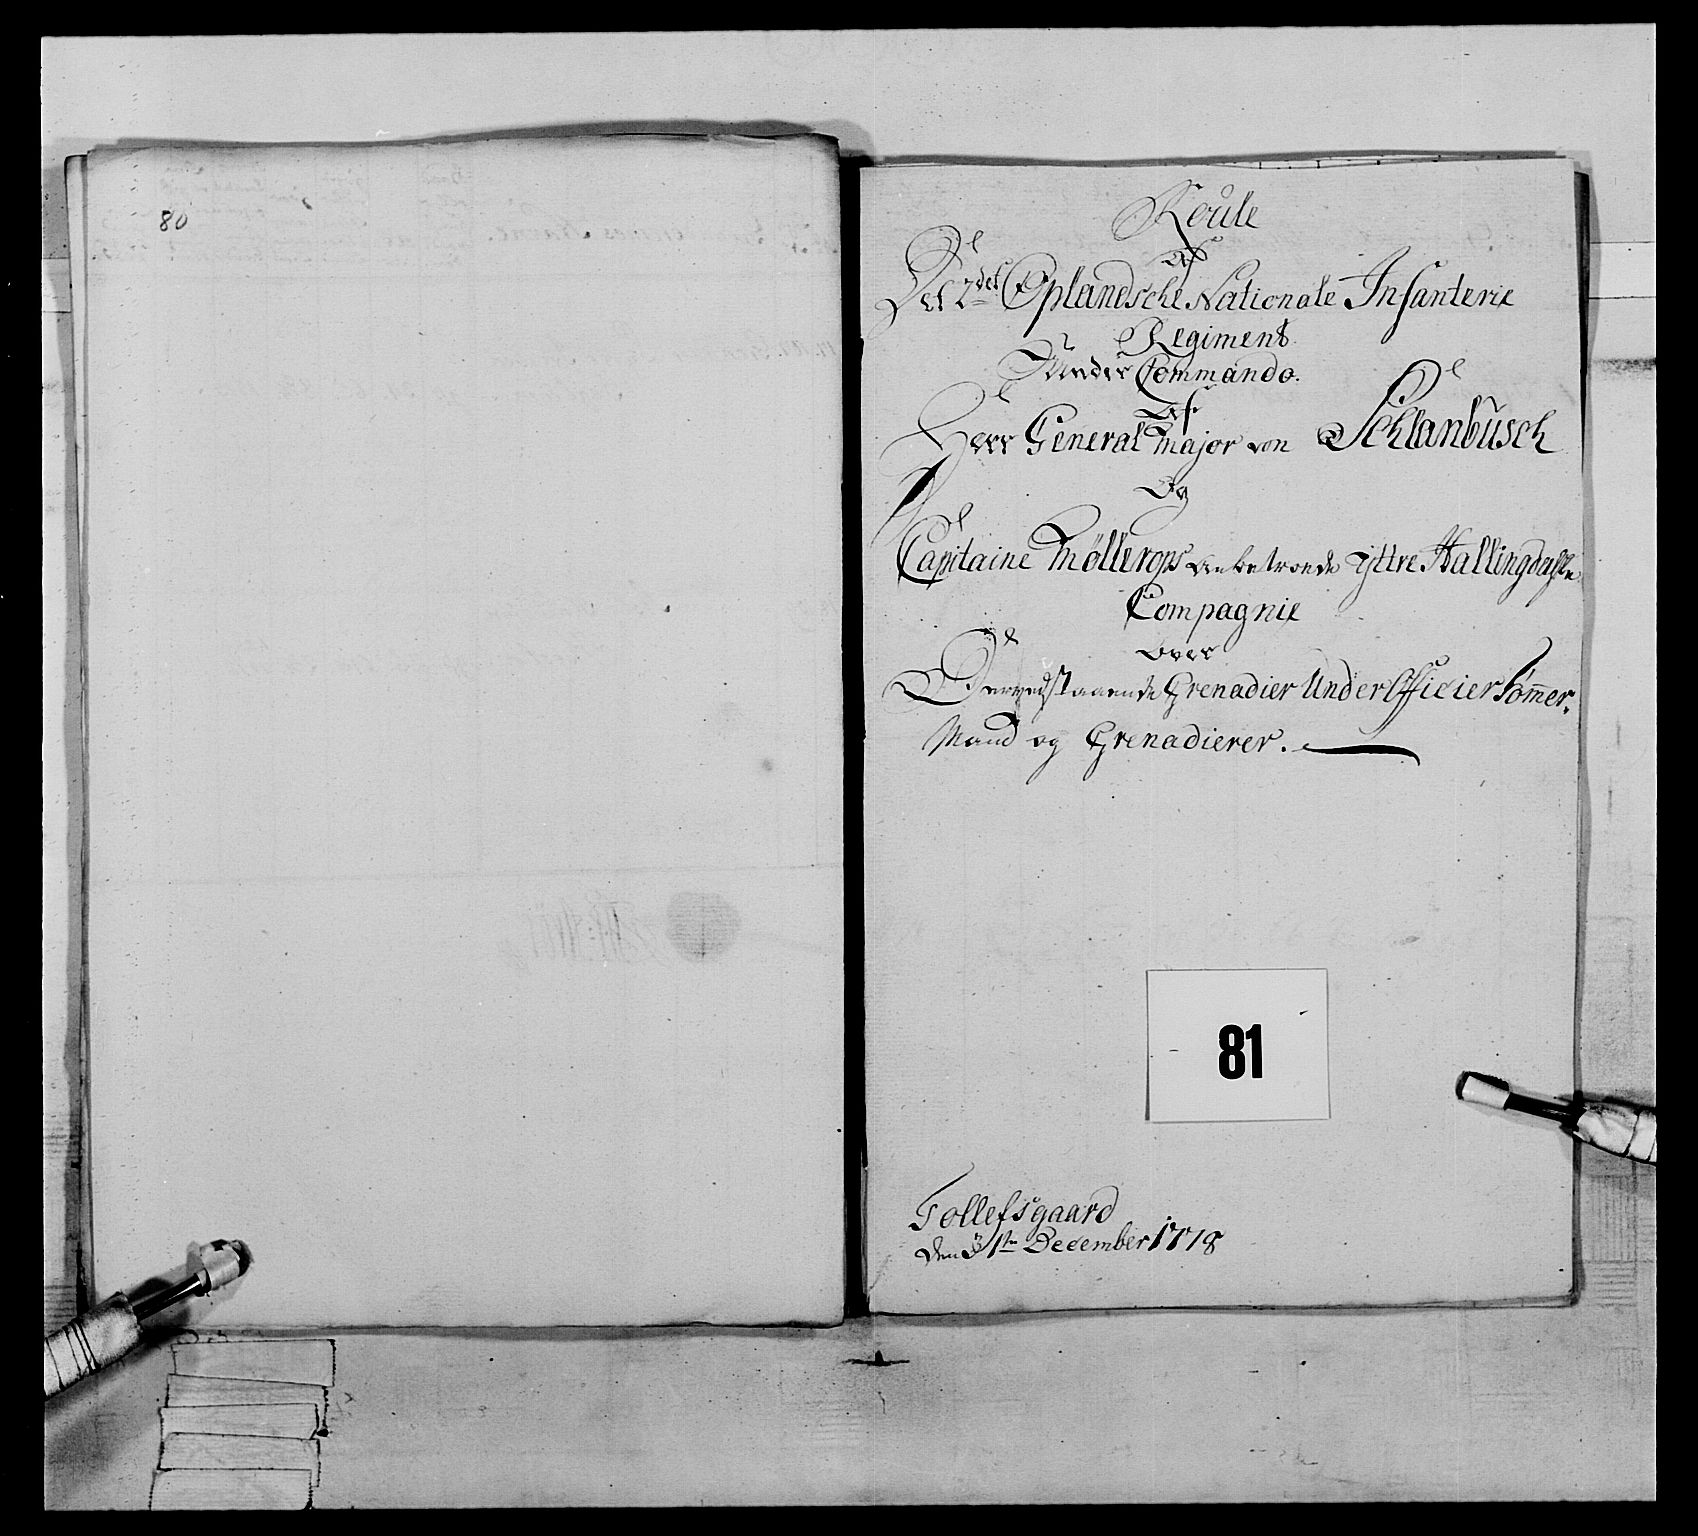 80
Roulle
Af
Det 2det Oplandsche Nationale Infanterie
Regiment
Under Commando.
Af
Herr General Major von Schlanbusch
Og
Capitaine Møllerops anbetroede Yttre Hallingdahls
Compagnie
over
Nervedstaaende Grenadier Under Officier Tømer,
Mand og Grenadierer.
81
Tollefsgaard
den 31te December 1778